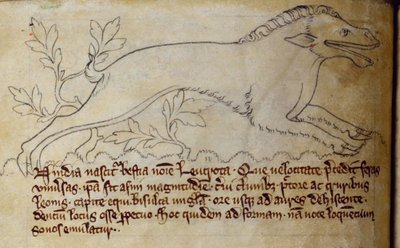 In india nascit᷑ bestia noīe Leucrota. Que uelocitate p̄cedit feras
uniu̅sas. ip̄a est asini magnitudīe. c̄ui clunibꝫ. pectore ac cruribus
leonis. capite equi. bisulca ungl̄a. ore uscꝫ ad aures dehiscente.
dentiū locus osse ꝑpetuo. hoc quidem ad formam. nā uoce loquentiū
sonos emulatur.